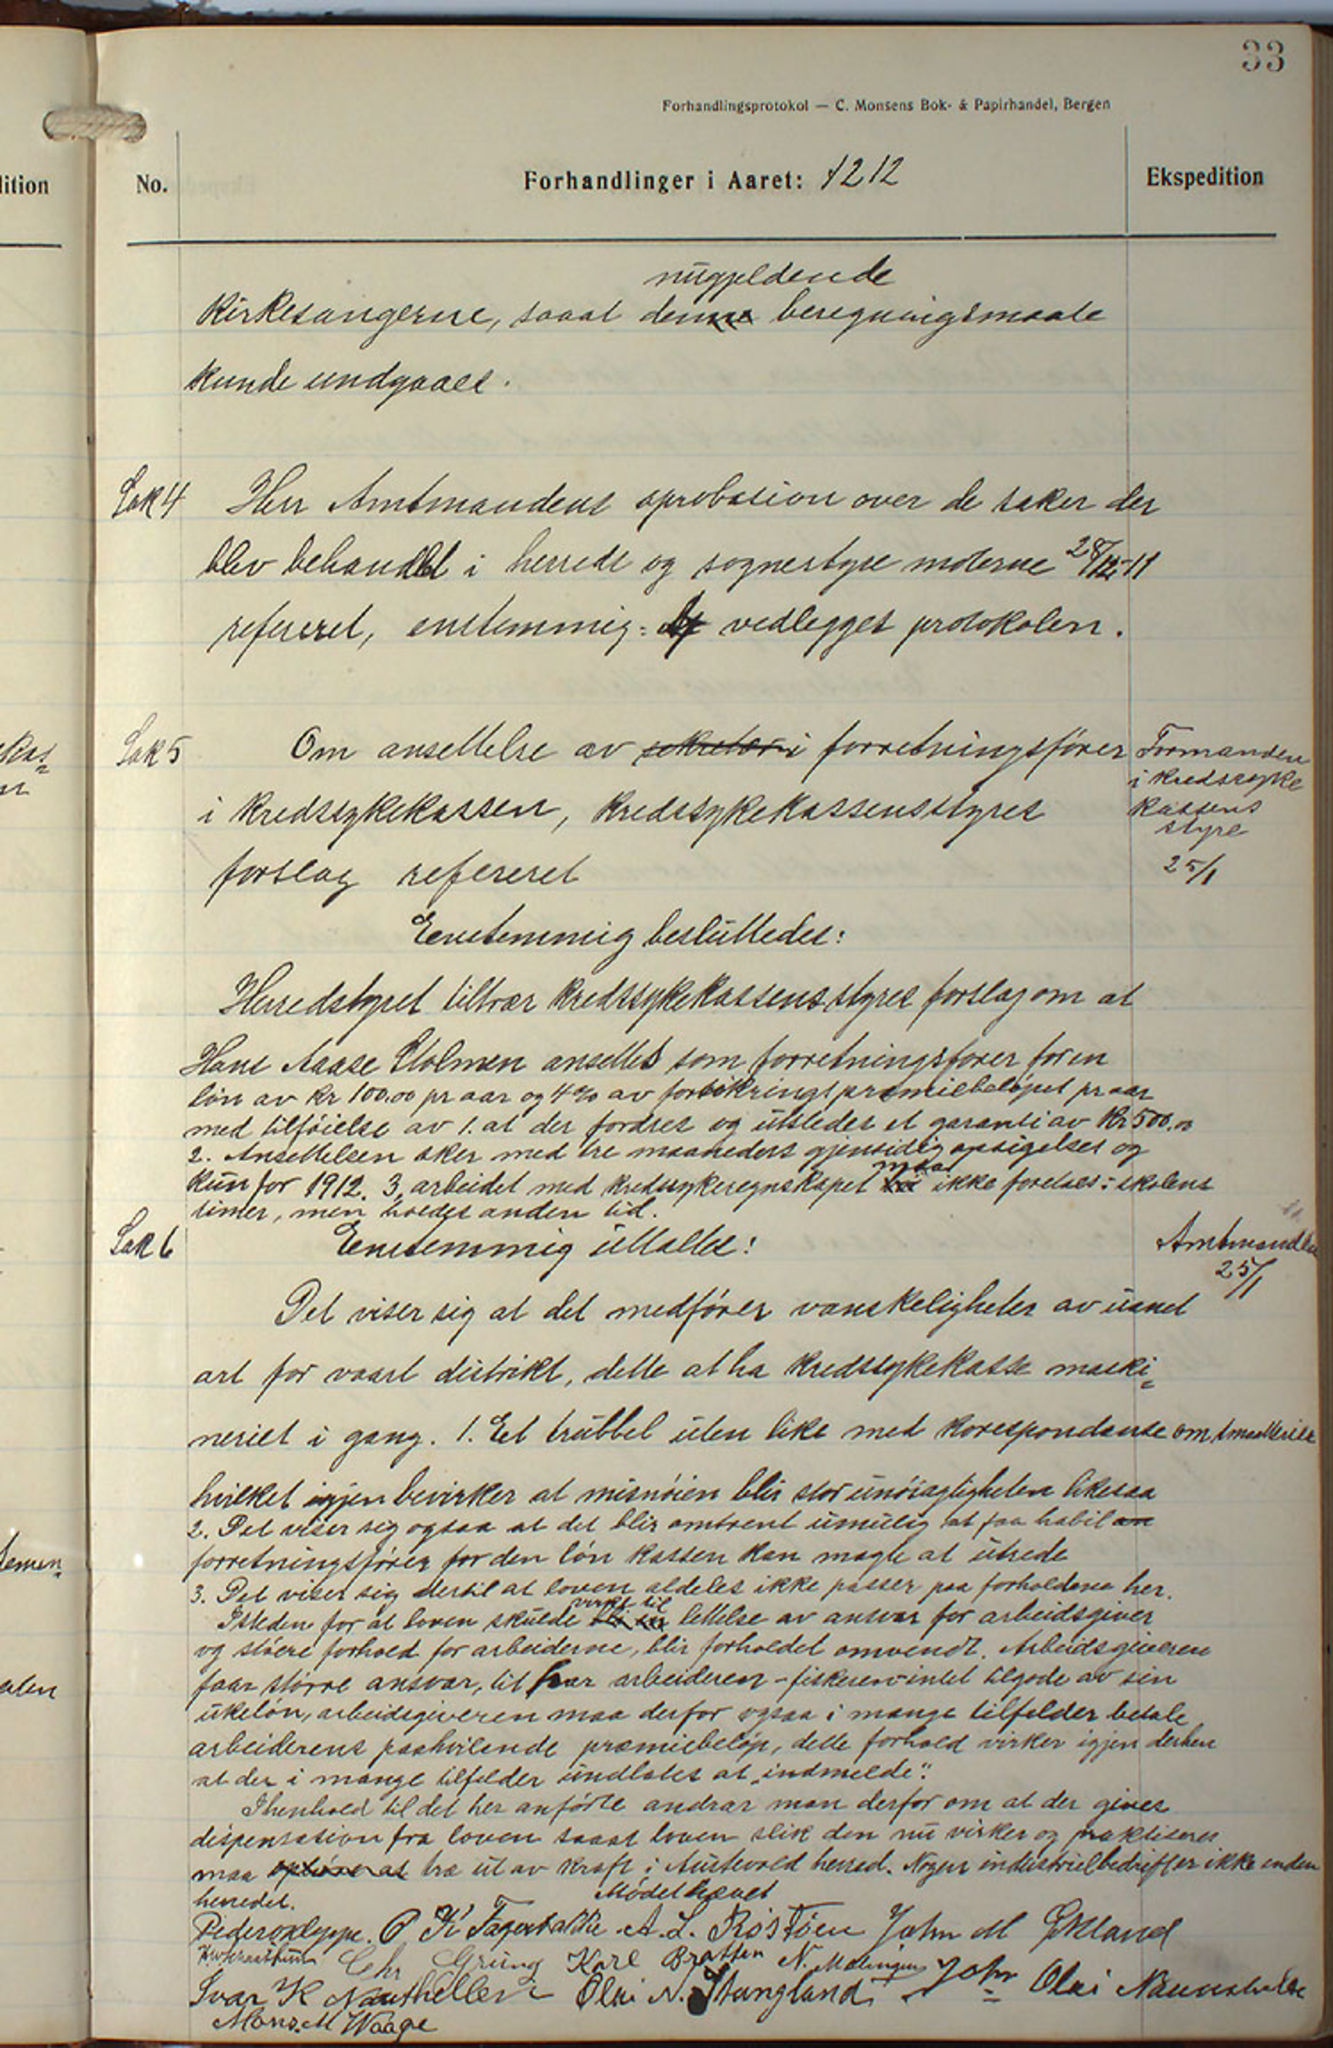 33
Forhandlingsprotokol — C. Monsens Bok- & Papirhandel, Bergen
lition
No.
Forhandlinger i Aaret: 1212
Ekspedition
nugjeldende
Kirkesangerne, saaat denne beregningsmaate
kunde undgaaes.
Sak 4
Herr Amtmandens aprobasion over de saker der
blev behandlet i herreds og sognestyre møterne 28/12-11
refereret, enstemmig: vedlegges protokolen.
Sak 5
Om ansettelse av sekretær i forretningsfører
Formanden
i kredssyke
kassens
styre
25/1
i kredssykekassen, kredssykekassensstyres
forslag refereret
Eenstemmig besluttedes:
Herredstyret tiltrær kredssykekassensstyres forslag om at
Hans Aaase Stolmen ansettes som forretningsfører for en
løn av kr 100.00 pr aar og 4% av forsikringspræmiebeløpet pr aar
med tilføielse av 1. at der fordres og utstedes et garanti av kr 500.00
2. Ansettelsen sker med tre maaneders gjensidig opsigelse og
maa
kun for 1912. 3. arbeidet med kredssykeregnskapet ikke foretaes i skolens
timer, men holdes anden tid.
Sak 6
Eenstemmig uttaltes:
Amtmanden
25/1
Det viser sig at det medfører vanskeligheter av uanet
art for vaart distrikt, dette at ha kredssykekasse maski-
neriet i gang. 1. Eet trubbel uten like med korespondanse om smaatterier
hvilket igjen bevirker at misnøien blir stor unøiagtigheten likesaa
2. Det viser sig ogsaa at det blir omtrent umulig at faa habil en
forretningsfører for den løn kassen kan magte at utrede
3. Det viser sig dertil at loven aldeles ikke passer paa forholdene her.
virke til
Isteden for at loven skulde bli en lettelse av ansvar for arbeidsgiver
og støere forhold for arbeiderne, blir forholdet omvendt. Arbeidsgiveren
faar større ansvar, tit har arbeideren - fiskeren intet tilgode av sin
ukeløn, arbeidsgiveren maa derfor ogsaa i mange tilfelder betale
arbeiderens paahvilende præmiebeløp, dette forhold virker igjen derhen
at der i mange tilfelder undlates at "indmelde".
I henhold til det her anførte andrar man derfor om at der gives
dispensasion fra loven saaat loven slik den nu virker og praktiseres
maa ophøre at træ ut av kraft i Austevold herred. Nogen industrielbedrifter ikke inden
herredet.
Mødet hævet
Peder Kleppe. O. K. Fagerbakke. A. L. Røstøen John M Ekland
Chr Grüng Karl Bratten N. Møkingen
Ivar K Nauthellen Olai N. Stangland John Olai
Mons. M Waage